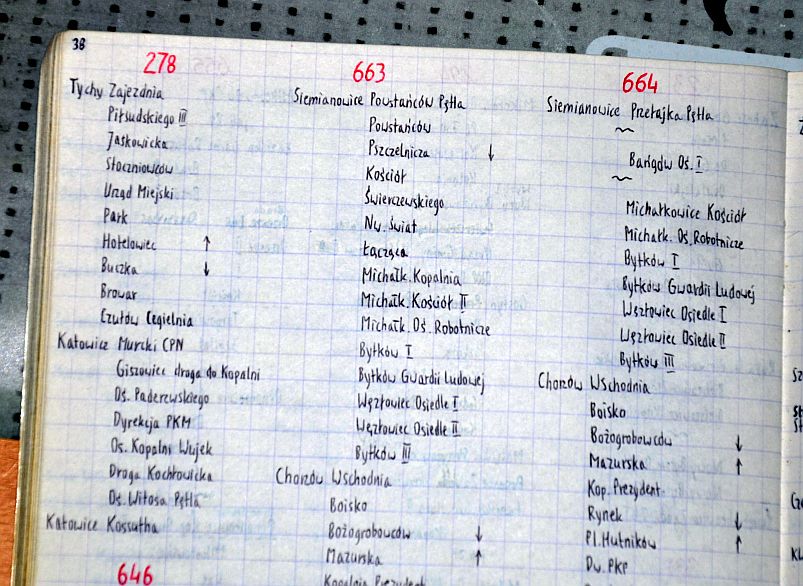 38
278
Tychy Zajezdnia
Piłsudskiego III
Jaśkowicka
Stoczniowców
Urząd Miejski
Park
Hotelowiec ↑
Buczka ↓
Browar
Czułów Cegielnia
Katowice Murcki CPN
Giszowiec droga do Kopalni
Oś. Paderewskiego
Dyrekcja PKM
Os. Kopalni Wujek
Droga Kochłowicka
Oś. Witosa Pętla
Katowice Kossutha
646
663
Siemianowice Powstańców Pętla
Powstańców
Pszczelnicza ↓
Kościół
Świerczewskiego
Nw. Świat
Łącząca
Michałk. Kopalnia
Michałk. Kościół II
Michałk. Oś. Robotnicze
Bytków I
Bytków Gwardii Ludowej
Węzłowiec Osiedle I
Węzłowiec Osiedle II
Bytków III
Chorzów Wschodnia
Boisko
Bożogrobowców ↓
Mazurska ↑
Kopalnia Prezydent
664
Siemianowice Przełajka Pętla
~
Bańgów Oś. I
~
Michałkowice Kościół
Michałk. Oś. Robotnicze
Bytków I
Bytków Gwardii Ludowej
Węzłowiec Osiedle I
Węzłowiec Osiedle II
Bytków III
Chorzów Wschodnia
Boisko
Bożogrobowców ↓
Mazurska ↑
Kop. Prezydent
Rynek ↓
Pl. Hutników ↑
Dw. PKP